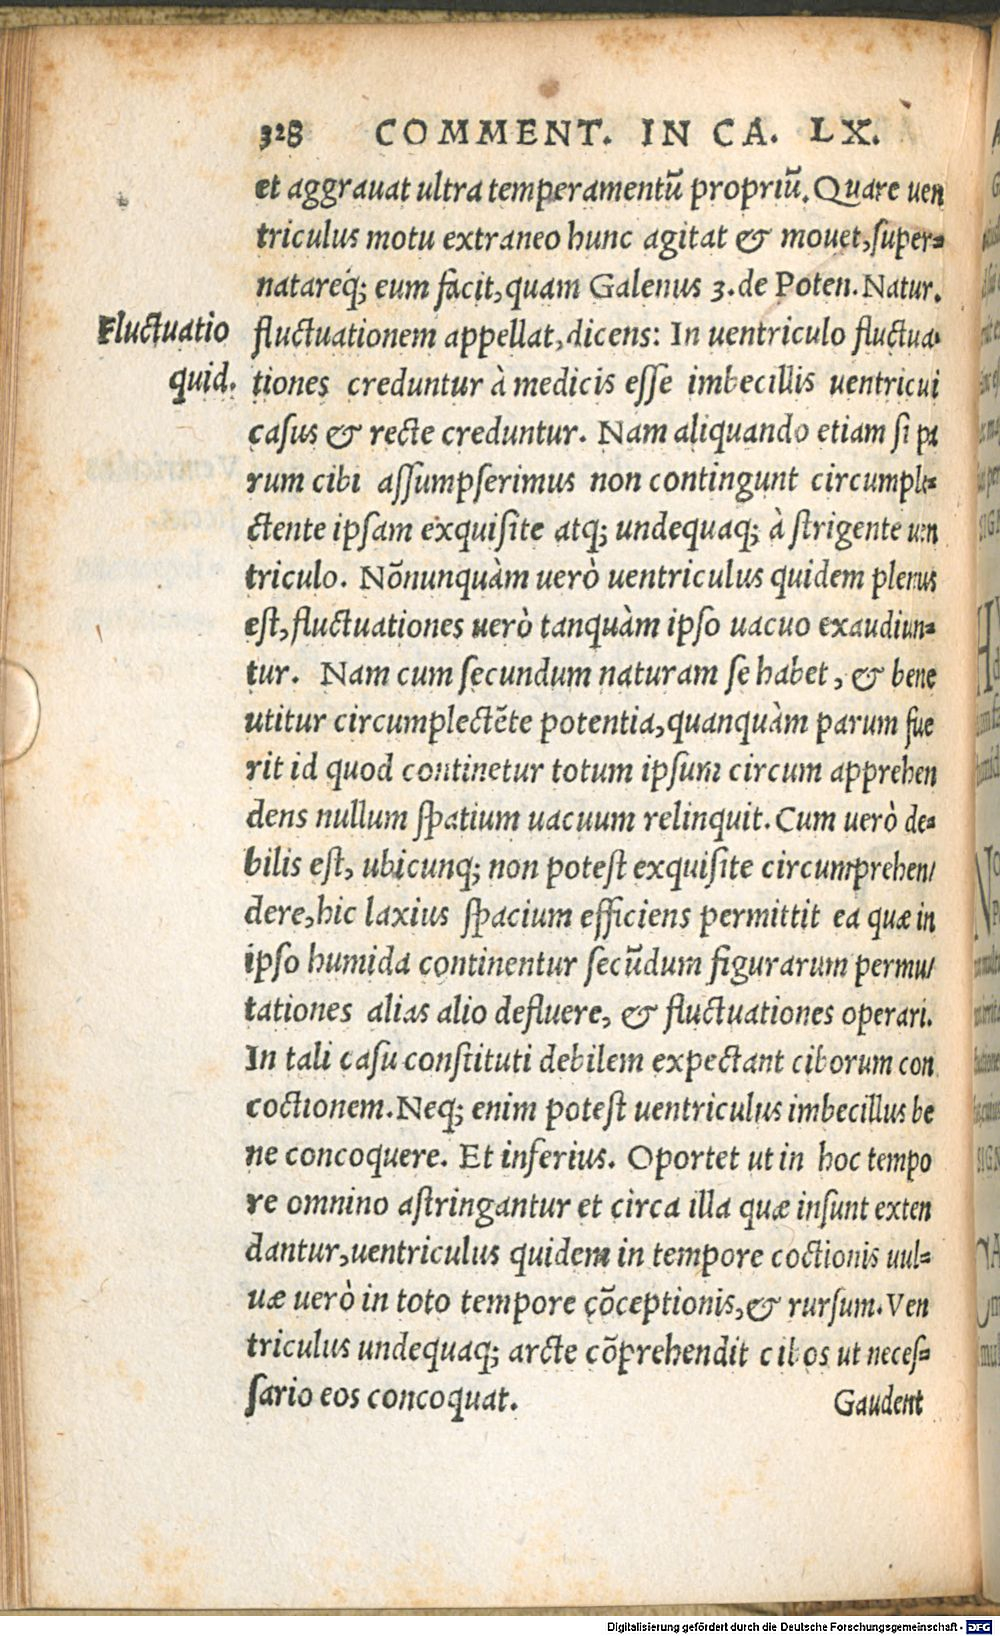 328 COMMENT. IN CA. LX.
et aggrauat ultra temperamentū propriū. Quare uen
triculus motu extraneo hunc agitat & mouet, super-
natareq; eum facit, quam Galenus 3. de Poten. Natur.
Fluctuatio
quid.
fluctuationem appellat, dicens: In uentriculo fluctua-
tiones creduntur à medicis esse imbecillis uentricui
casus & recte creduntur. Nam aliquando etiam si pa
rum cibi assumpserimus non contingunt circumple-
ctente ipsam exquisite atq; undequaq; à strigente uen
triculo. Nōnunquàm uerò uentriculus quidem plenus
est, fluctuationes uerò tanquàm ipso uacuo exaudiun-
tur. Nam cum secundum naturam se habet, & bene
utitur circumplectēte potentia, quanquàm parum fue
rit id quod continetur totum ipsum circum apprehen
dens nullum spatium uacuum relinquit. Cum uerò de-
bilis est, ubicunq; non potest exquisite circumprehen/
dere, hic laxius spacium efficiens permittit ea quæ in
ipso humida continentur secūdum figurarum permu/
tationes alias alio defluere, & fluctuationes operari.
In tali casu constituti debilem expectant ciborum con
coctionem. Neq; enim potest uentriculus imbecillus be
ne concoquere. Et inferius. Oportet ut in hoc tempo
re omnino astringantur et circa illa quæ insunt exten
dantur, uentriculus quidem in tempore coctionis uul-
uæ uerò in toto tempore cōceptionis, & rursum. Ven
triculus undequaq; arcte cōprehendit cibos ut neces-
sario eos concoquat.
Gaudent
Digitalisierung gefördert durch die Deutsche Forschungsgemeinschaft - DFG